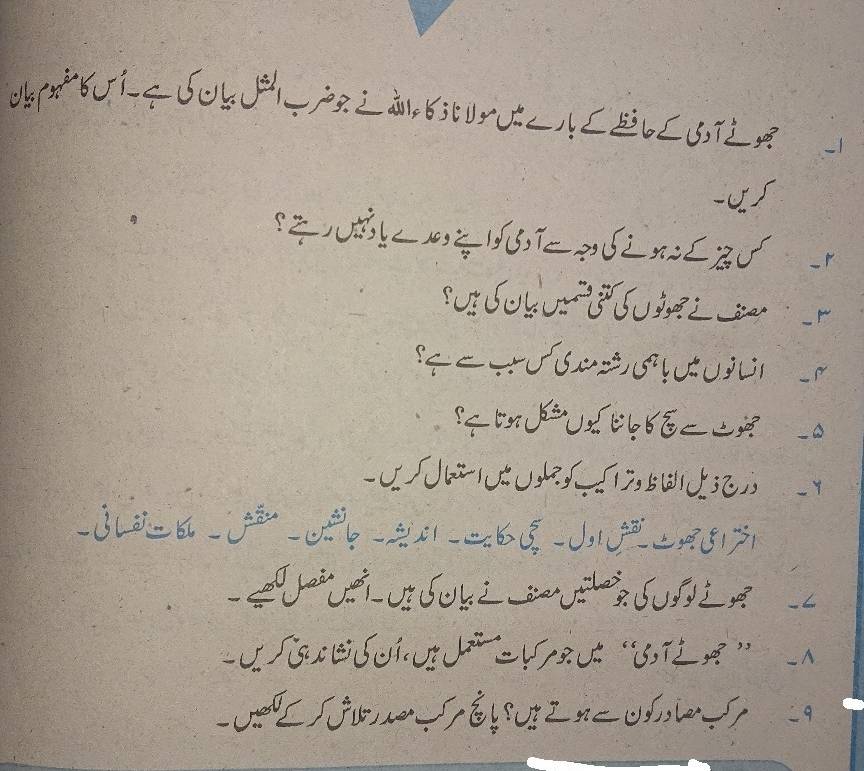 ۱۔ جھوٹے آدمی کے حافظے کے بارے میں مولانا ذکاء اللہ نے جو ضرب المثل بیان کی ہے۔ اُس کا مفہوم بیان
کریں۔
۲۔ کس چیز کے نہ ہونے کی وجہ سے آدمی کو اپنے وعدے یاد نہیں رہتے؟
۳۔ مصنف نے جھوٹوں کی کتنی قسمیں بیان کی ہیں؟
۴۔ انسانوں میں باہمی رشتہ مندی کس سبب سے ہے؟
۵۔ جھوٹ سے سچ کا جاننا کیوں مشکل ہوتا ہے؟
۶۔ درج ذیل الفاظ و تراکیب کو جملوں میں استعمال کریں۔
اختراعی جھوٹ۔ نقشِ اول۔ سچی حکایت۔ اندیشہ۔ جانشین۔ منقّش۔ ملکات نفسانی۔
۷۔ جھوٹے لوگوں کی جو خصلتیں مصنف نے بیان کی ہیں۔ انھیں مفصل لکھیے۔
۸۔ ”جھوٹے آدمی“ میں جو مرکبات مستعمل ہیں، اُن کی نشاندہی کریں۔
۹۔ مرکب مصادر کون سے ہوتے ہیں؟ پانچ مرکب مصدر تلاش کر کے لکھیں۔